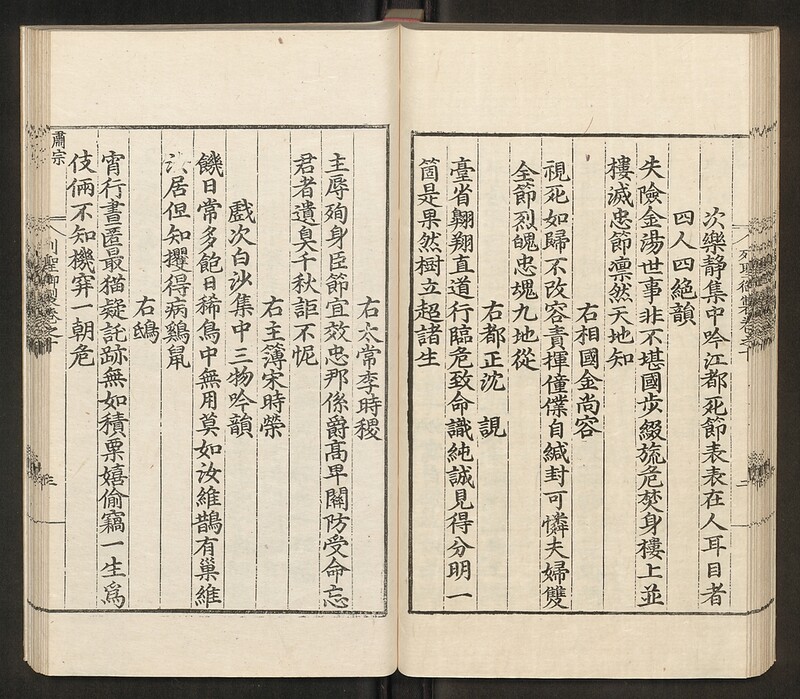 次樂靜集中吟江都死節表表在人耳目者
四人四絶韻
失險金湯世事非不堪國步綴旒危焚身樓上並
樓滅忠節凛然天地知
右相國金尚容
視死如歸不改容責揮僮僕自緘封可憐夫婦雙
全節烈魄忠塊九地從
右都正沈誢
臺省翺翔直道行臨危致命識純誠見得分明一
箇是果然樹立超諸生
右太常李時稷
主辱殉身臣節宜效忠那係爵高卑關防受命忘
君者遺臭千秋詎不怩
右主簿宋時榮
戲次白沙集中三物吟韻
饑日常多飽日稀鳥中無用莫如汝維鵲有巢維
居但知攫得病鷄鼠
右鴟
宵行晝匿最猫疑託跡無如積粟嬉偷竊一生爲
伎倆不知機穽一朝危
肅宗
列聖御製卷之十
三